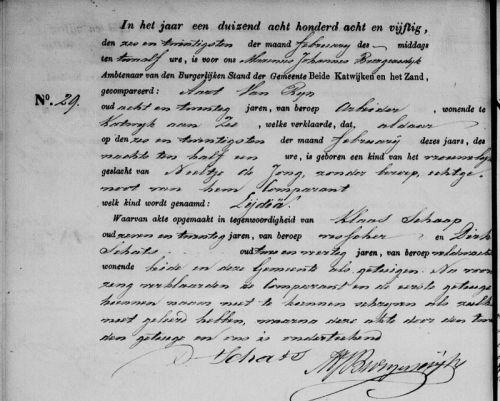 In het jaar een duizend acht honderd acht en vijftig,
den zes en twintigsten der maand februarij des middags
ten twaalf ure, is voor ons Marinus Johannes
Ambtenaar van den Burgerlijken Stand der Gemeente Beide Katwijken en het Zand,
No. 29.
gecompareerd: Aart Van Rijn
oud acht en twintig jaren, van beroep Arbeider, wonende te
Katwijk aan Zee, welke verklaarde, dat, aldaar
op den zes en twintigsten der maand februarij dezes jaars, des
nachts ten half een ure, is geboren een kind van het vrouwelijk
geslacht van Neeltje de Jong, zonder beroep, echtge-
noot van hem Comparant
welk kind wordt genaamd: Lijdia.
Waarvan akte opgemaakt in tegenwoordigheid van Klaas Schaap
oud zeven en twintig jaren, van beroep visscher en Dirk
Schats oud twee en veertig jaren, van beroep veldwachter
wonende beide in deze Gemeente als getuigen. Na voorle-
zing verklaarden de Comparant en de eerste getuige
hunnen naam niet te kunnen schrijven als zulks
niet geleerd hebben, waarna deze akte door den twee-
den getuige en ons is onderteekend
D Schats